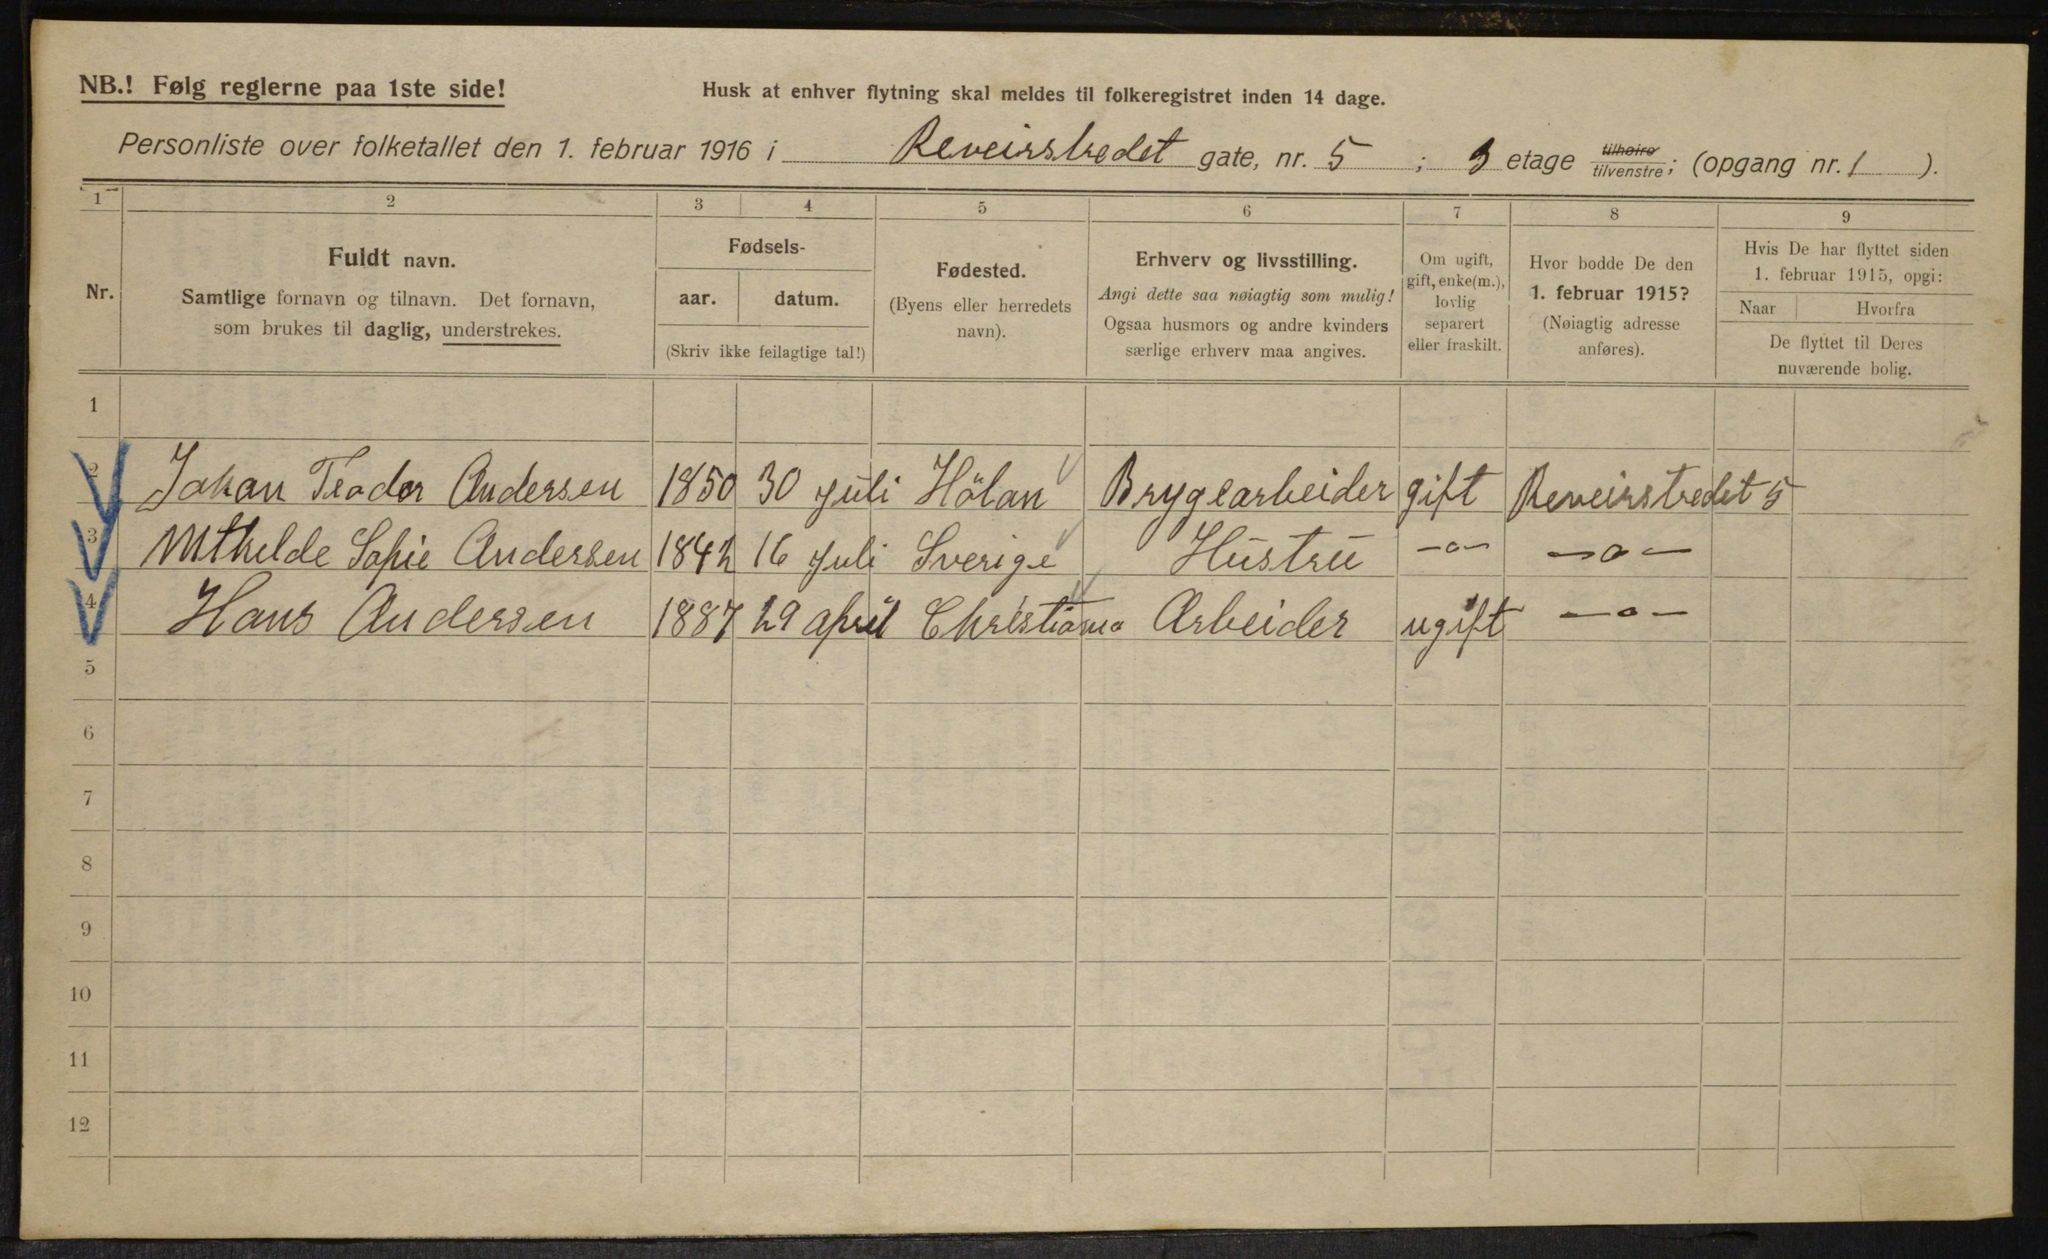 NB.! Følg reglerne paa 1ste side!
Husk at enhver flytning skal meldes til folkeregistret inden 14 dage.
Personliste over folketallet den 1. februar 1916 i Reveirstredet gate, nr. 5 ; 3 etage tilhøire tilvenstre; (opgang nr. 1 ).
1 2 3 4 5 6 7 8 9
Nr.
Fuldt navn.
Samtlige fornavn og tilnavn. Det fornavn,
som brukes til daglig, understrekes.
Fødsels-
aar. datum.
(Skriv ikke feilagtige tal!)
Fødested.
(Byens eller herredets
navn).
Erhverv og livsstilling.
Angi dette saa nøiagtig som mulig!
Ogsaa husmors og andre kvinders
særlige erhverv maa angives.
Om ugift,
gift, enke(m.),
lovlig
separert
eller fraskilt.
Hvor bodde De den
1. februar 1915?
(Nøiagtig adresse
anføres).
Hvis De har flyttet siden
1. februar 1915, opgi:
Naar Hvorfra
De flyttet til Deres
nuværende bolig.
1
2 Johan Teador Andersen 1850 30 juli Hölan Brygearbeider gift Reveirstredet 5
3 Mthelde Sofie Andersen 1842 16 juli Sverige Hustru —o— —o—
4 Hans Andersen 1887 29 april Christiania Arbeider ugift —o—
5
6
7
8
9
10
11
12